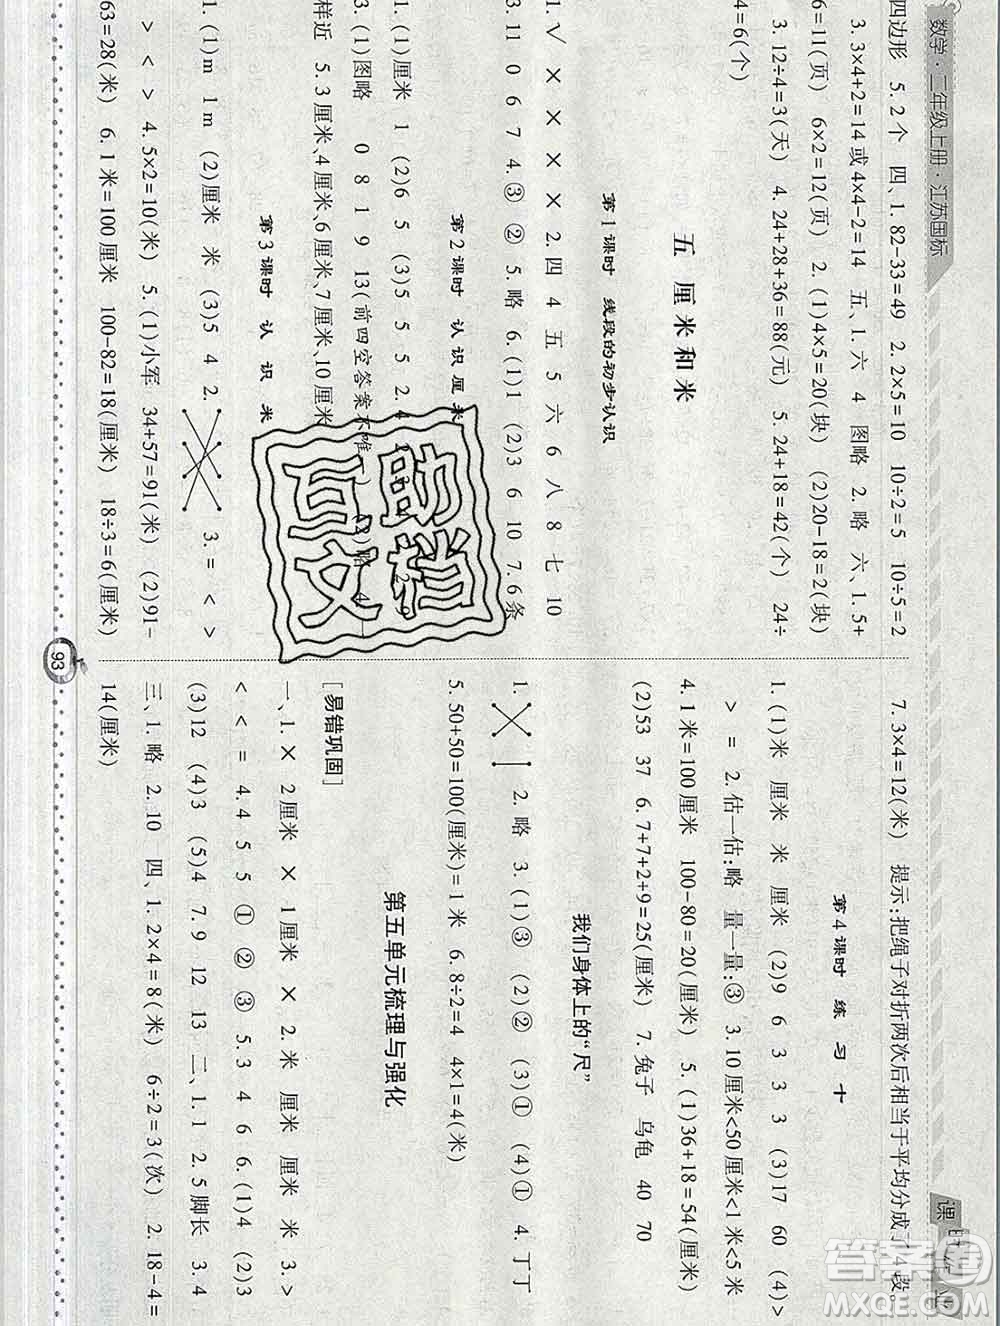 数学·二年级上册·江苏国标
四边形 5. 2 个 四、1. 82-33=49 2. 2×5=10 10÷2=5 10÷5=2
3. 3×4+2=14 或 4×4-2=14 五、1. 六 4 图略 2. 略 六、1. 5+
6=11(页) 6×2=12(页) 2. (1)4×5=20(块) (2)20-18=2(块)
3. 12÷4=3(天) 4. 24+28+36=88(元) 5. 24+18=42(个) 24÷
4=6(个)
五 厘米和米
第 1 课时 线段的初步认识
1. √ × × × × 2. 四 4 五 5 六 6 八 8 七 10
3. 11 0 6 7 4. ③ ② 5. 略 6. (1)1 (2)3 6 10 7. 6 条
第 2 课时 认识厘米
1. (1)厘米 1 (2)6 5 (3)5 5 5 2. 4
3. (1)图略 0 8 1 9 13(前四空答案不唯一) (2)略 4.
样近 5. 3 厘米、4 厘米、6 厘米、7 厘米、10 厘米
第 3 课时 认 识 米
1. (1)m 1m (2)厘米 米 (3)5 4 2. 3. = < >
> < > 4. 5×2=10(米) 5. (1)小军 34+57=91(米) (2)91-
63=28(米) 6. 1 米=100 厘米 100-82=18(厘米) 18÷3=6(厘米)
7. 3×4=12(米) 提示:把绳子对折两次后相当于平均分成了 4 段。
第 4 课时 练 习 十
1. (1)米 厘米 米 厘米 (2)9 6 3 3 3 (3)17 60 (4)>
> = 2. 估一估:略 量一量:③ 3. 10 厘米<50 厘米<1 米<5 米
4. 1 米=100 厘米 100-80=20(厘米) 5. (1)36+18=54(厘米)
(2)53 37 6. 7+7+2+9=25(厘米) 7. 兔子 乌龟 40 70
我们身体上的“尺”
1. 2. 略 3. (1)③ (2)② (3)① (4)① 4. 丁丁
5. 50+50=100(厘米)=1 米 6. 8÷2=4 4×1=4(米)
第五单元梳理与强化
[易错巩固]
一、1. × 2 厘米 × 1 厘米 × 2. 米 厘米 厘米 米 3. >
< < = 4. 4 5 5 ① ② ③ 5. 3 4 6 6. (1)4 (2)3
(3)12 (4)3 (5)4 7. 9 12 13 二、1. 1 2. 5 脚长 3. 4
三、1. 略 2. 10 四、1. 2×4=8(米) 6÷2=3(次) 2. 18-4=
14(厘米)
93
答案圈
MXQE.COM